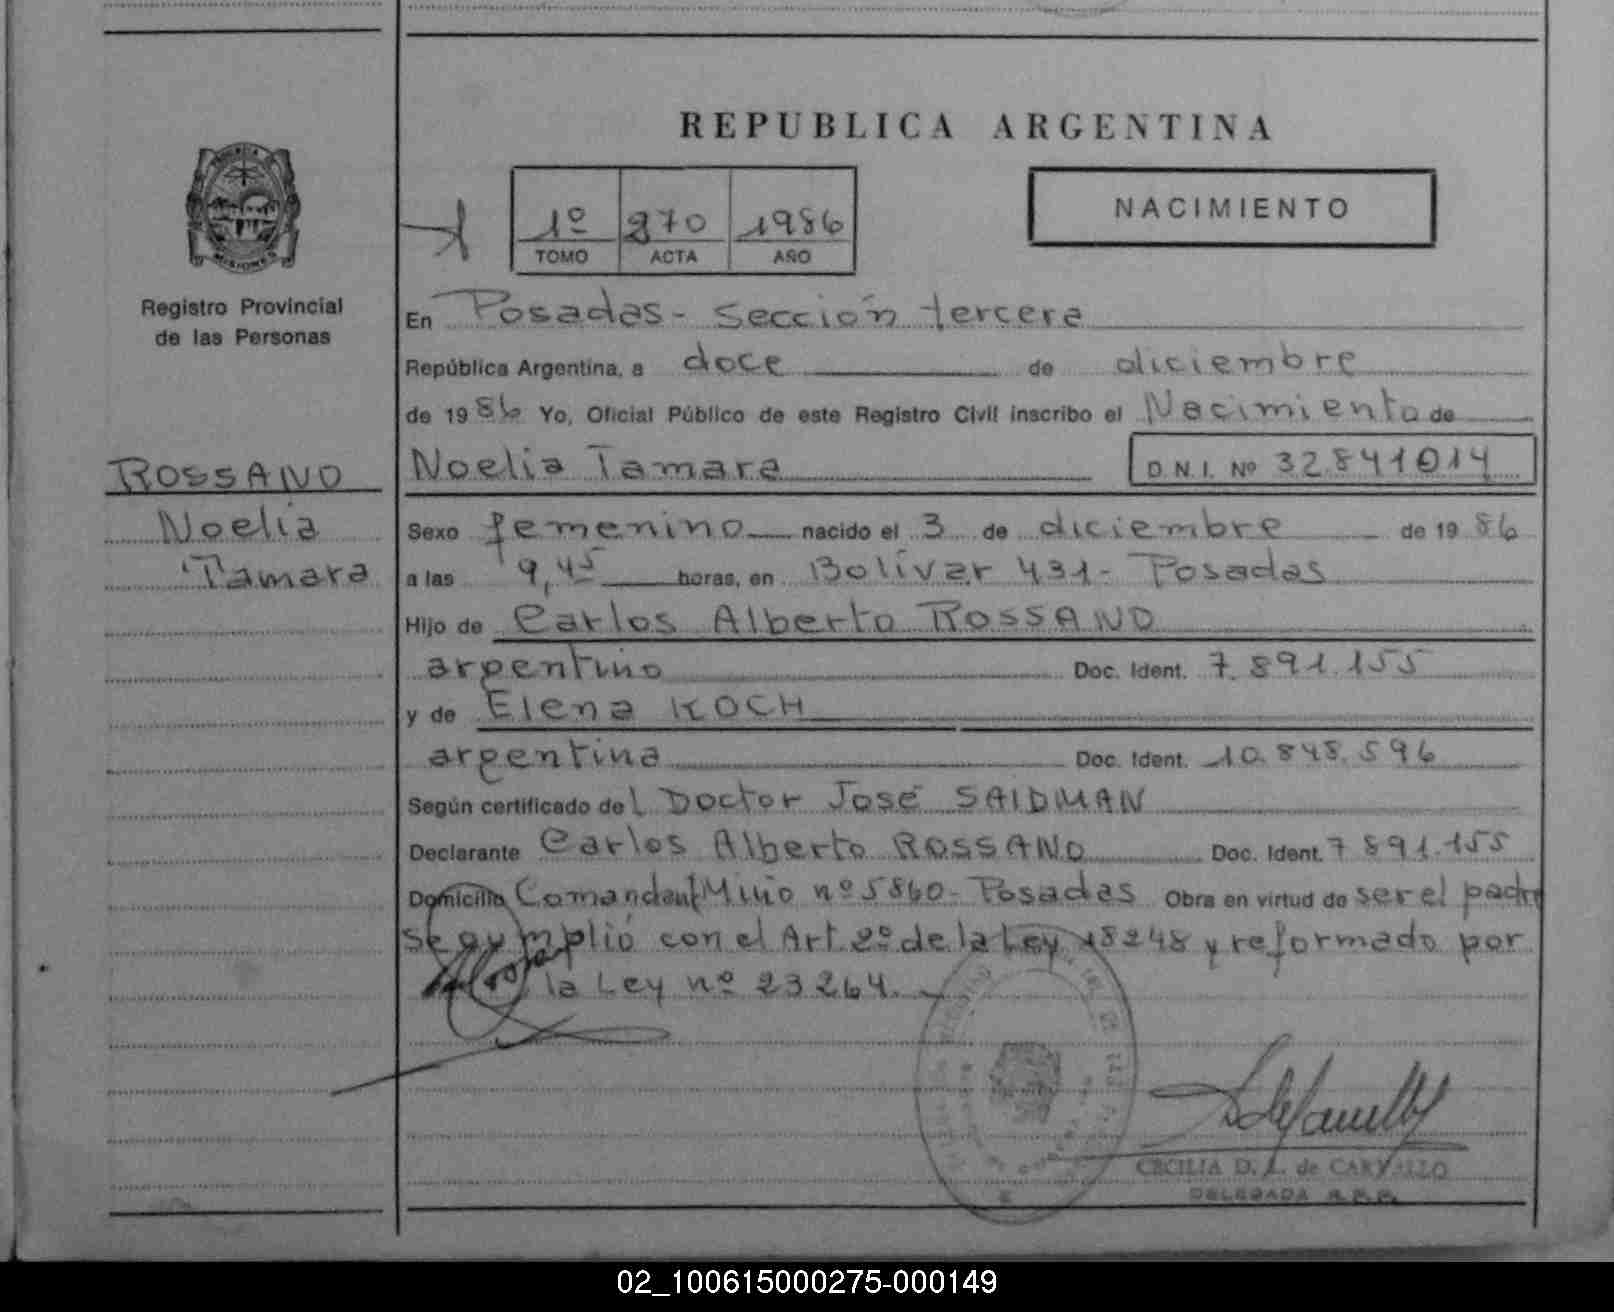 REPUBLICA ARGENTINA
PROVINCIA DE
MISIONES
Registro Provincial
de las Personas
1º 270 1986
TOMO ACTA AÑO
NACIMIENTO
En Posadas - Sección tercera
República Argentina, a doce de diciembre
de 1986 Yo, Oficial Público de este Registro Civil inscribo el Nacimiento de
Noelia Tamara D.N.I. Nº 32.841014
ROSSANO
Noelia
Tamara
Sexo femenino nacido el 3 de diciembre de 1986
a las 9,45 horas, en Bolívar 431 - Posadas
Hijo de Carlos Alberto ROSSANO
argentino Doc. Ident. 7.891.155
y de Elena KOCH
argentina Doc. Ident. 10.848.596
Según certificado del Doctor José SAIDMAN
Declarante Carlos Alberto ROSSANO Doc. Ident. 7891.155
Domicilio Comandant Miño nº 5860 - Posadas Obra en virtud de ser el padre
se cumplió con el Art. 2º de la Ley 18248 y reformado por
la Ley nº 23264.
CECILIA D. L. de CARVALLO
DELEGADA R.P.P.
02_100615000275-000149